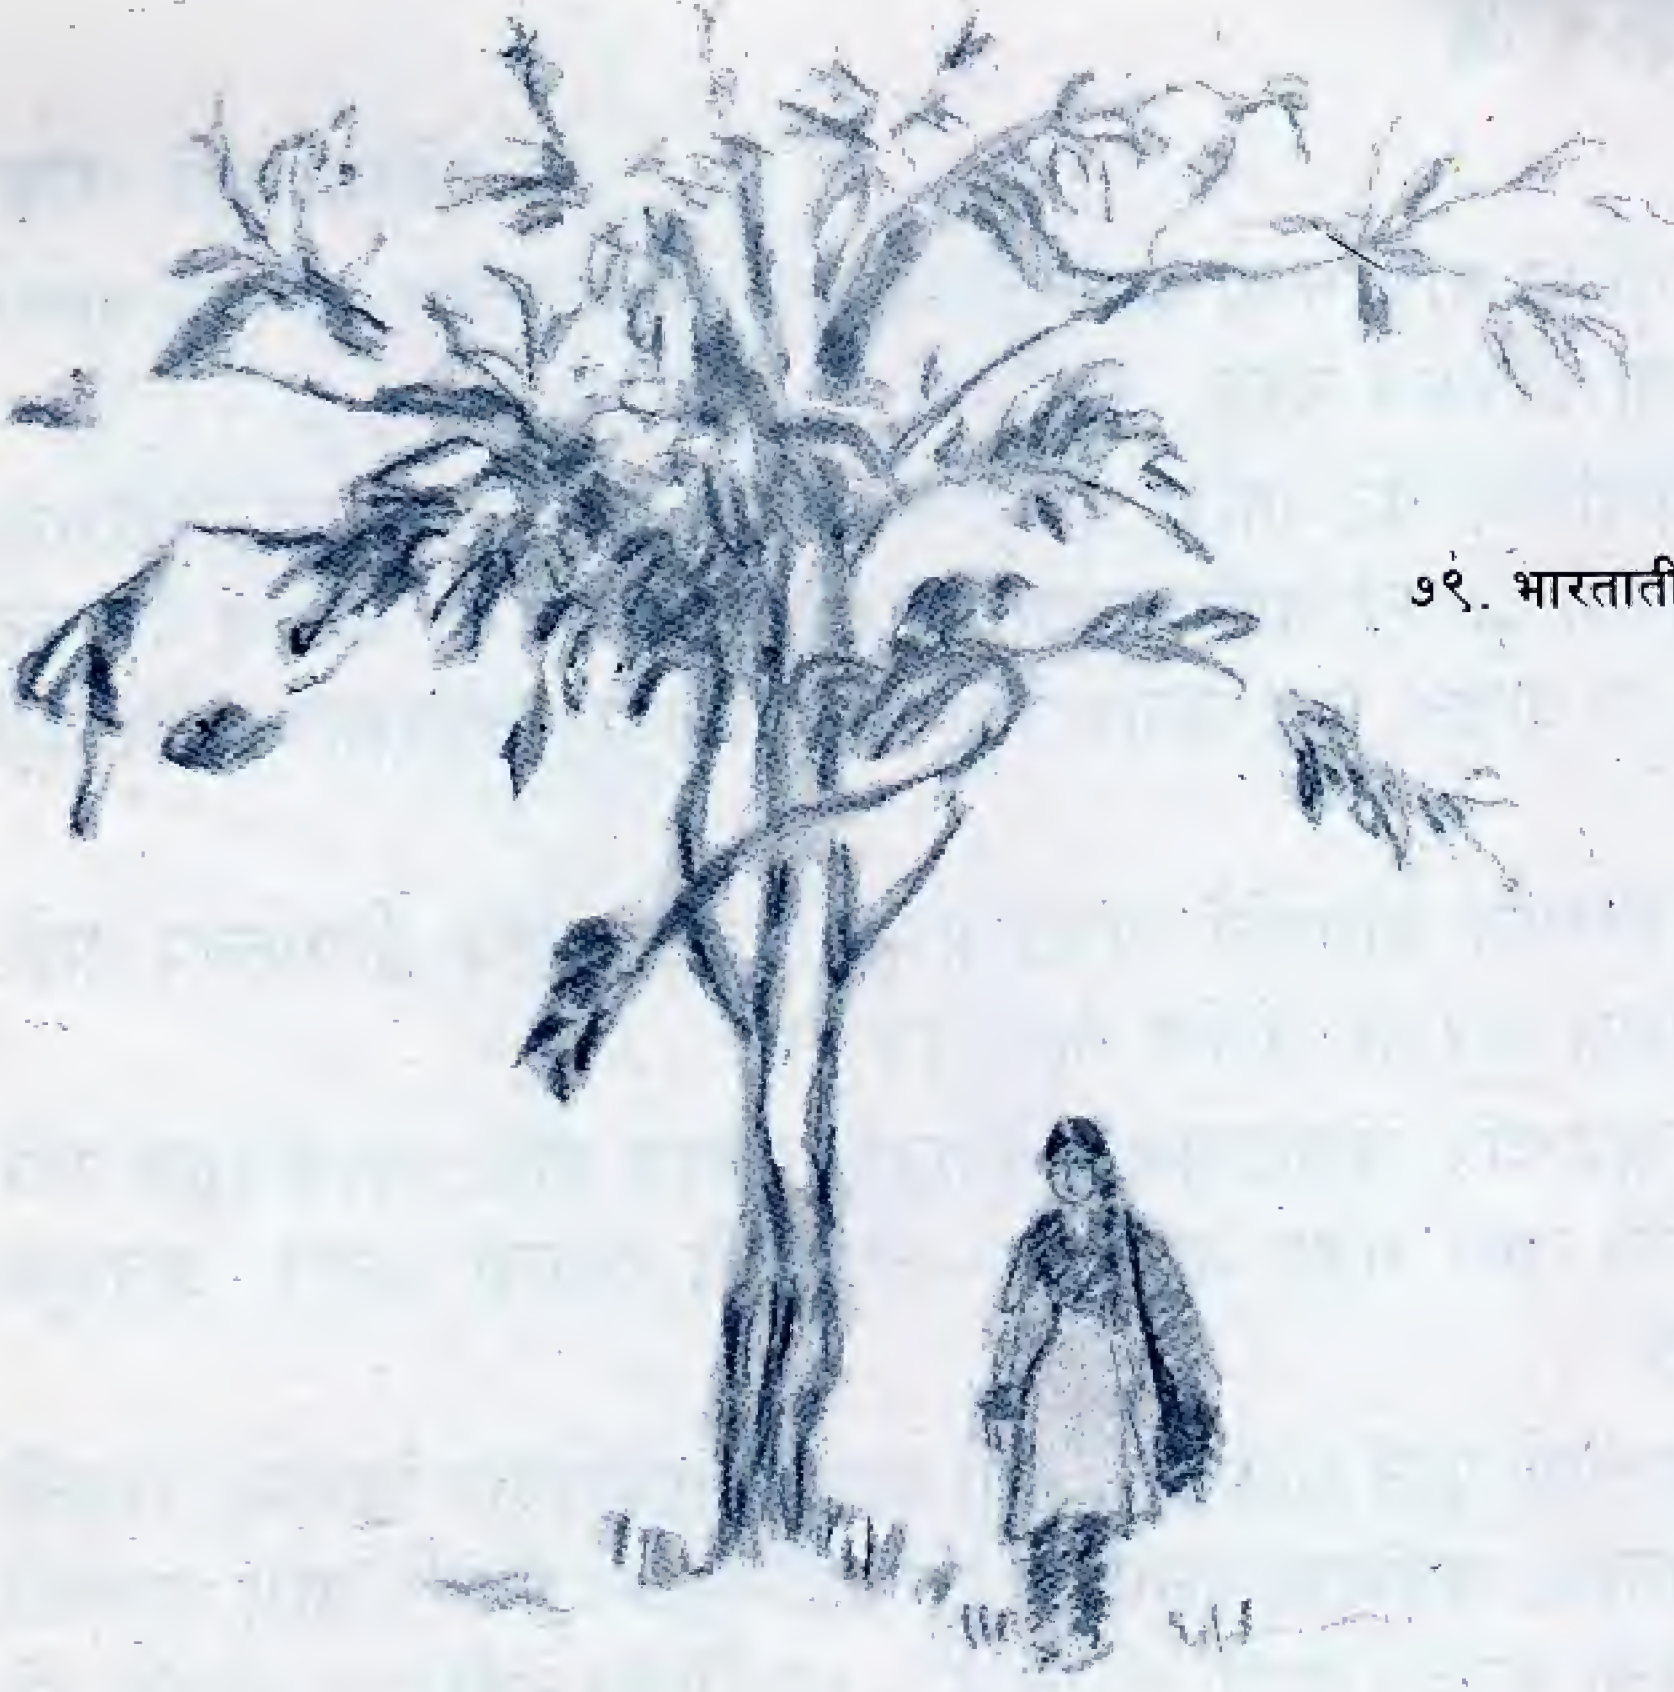 ७९. भारताती